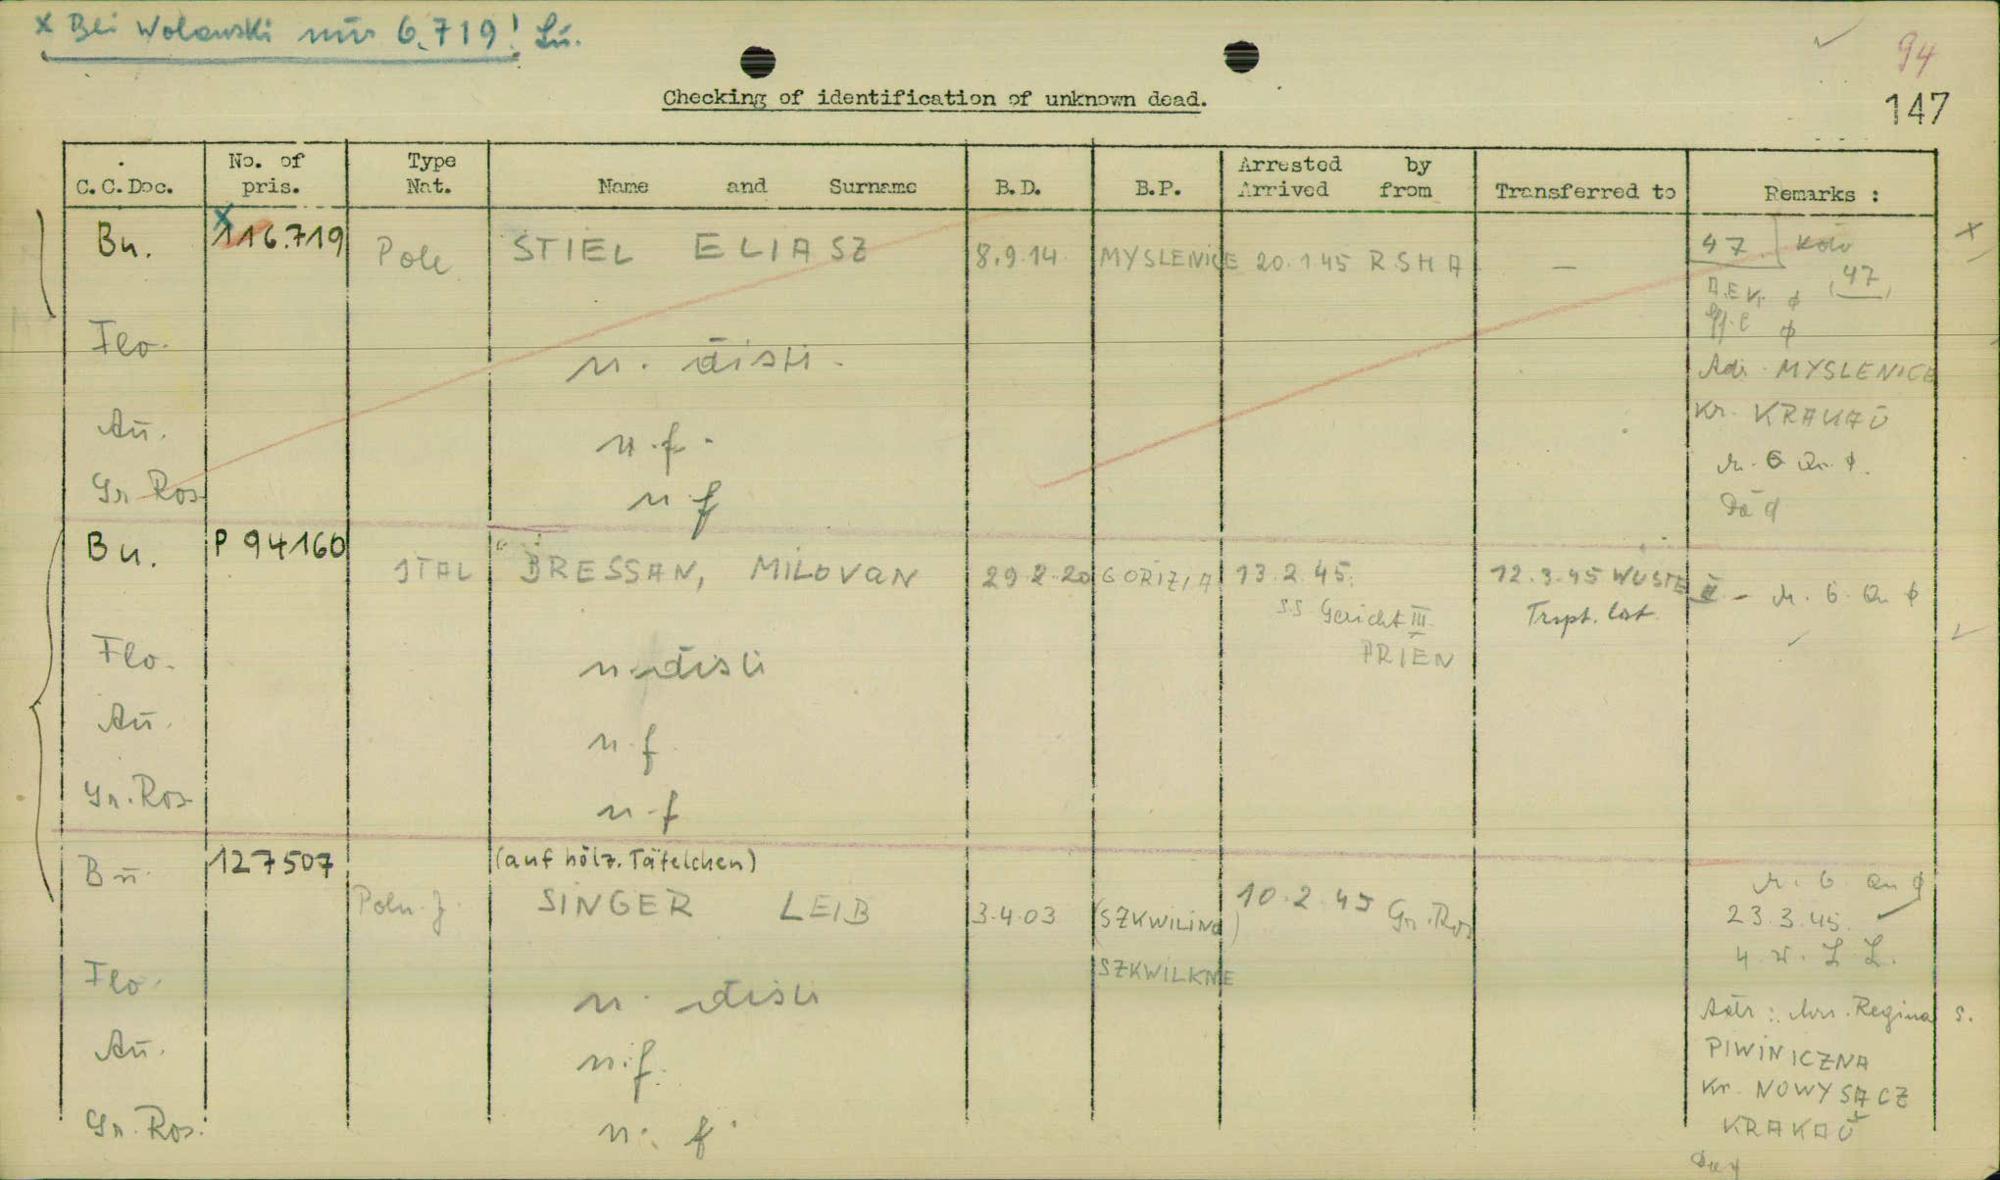 x Bei Wolanski nur 6.719! Lü.
94
147
Checking of identification of unknown dead.
C.C.Doc.
No. of pris.
Type Nat.
Name and Surname
B.D.
B.P.
Arrested by
Arrived from
Transferred to
Remarks :
Bu. 116.719 Pole STIEL ELIASZ 8.9.14. MYSLENICE 20.1.45 RSHA — 47
(47)
Flo. n. disti.
Adr. MYSLENICE
Au. n.f.
Kr. KRAKAU
Gr Ros n f
Bu. P 94160 ITAL BRESSAN, MILOVAN 29.2.20 GORIZIA 13.2.45. 12.3.45 WUSTE
SS Gericht III Trspt. List
PRIEN
Flo. n. disti
Au. n.f
Gr. Ros. n.f
Bu. 127507 (auf hölz. Täfelchen)
Poln. J. SINGER LEIB 3.4.03 (SZKWILINO) 10.2.45 Gr. Ros 23.3.45.
SZKWILKNE
Flo. n. disti
Adr: Regina S.
Au. n.f.
PIWINICZNA
Kr. NOWY SACZ
Gr. Ros. n. f.
KRAKAU